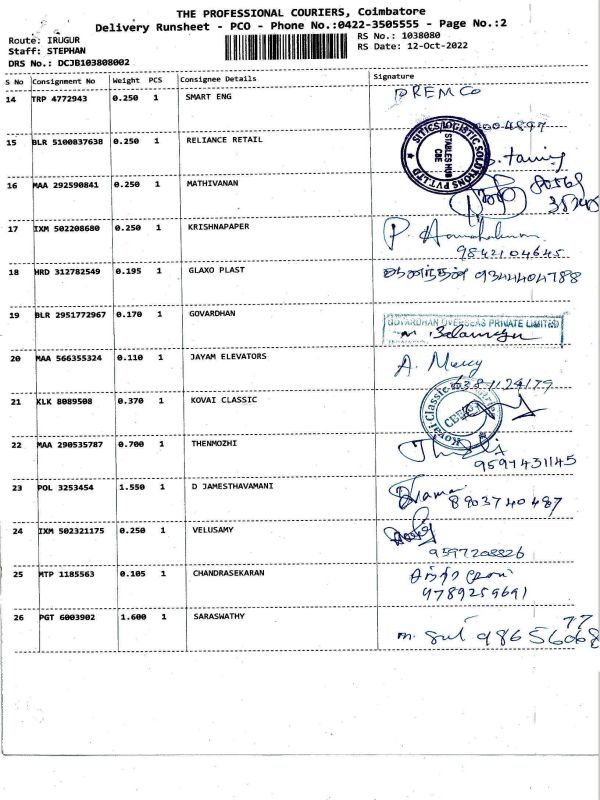 THE PROFESSIONAL COURIERS, Coimbatore
Delivery Runsheet - PCO - Phone No.:0422-3505555 - Page No.:2
Route: IRUGUR RS No.: 1038080
Staff: STEPHAN RS Date: 12-Oct-2022
DRS No.: DCJB103808002
S No Consignment No Weight PCS Consignee Details Signature
14 TRP 4772943 0.250 1 SMART ENG PREMCO
15 BLR 5100837638 0.250 1 RELIANCE RETAIL
SITICS LOGISTIC SOLUTIONS PVT.LTD
STABLES HUB
CBE
16 MAA 292590841 0.250 1 MATHIVANAN
17 IXM 502208680 0.250 1 KRISHNAPAPER P.
9842104645
18 HRD 312782549 0.195 1 GLAXO PLAST ஆனந்தன் 9344404788
19 BLR 2951772967 0.170 1 GOVARDHAN
GOVARDHAN OVERSEAS PRIVATE LIMITED
20 MAA 566355324 0.110 1 JAYAM ELEVATORS A. Mercy
6381124179
21 KLK 8089508 0.370 1 KOVAI CLASSIC
Kovai Classic
22 MAA 290535787 0.700 1 THENMOZHI
9597431145
23 POL 3253454 1.550 1 D JAMESTHAVAMANI
8903740487
24 IXM 502321175 0.250 1 VELUSAMY
9597208826
25 MTP 1185563 0.105 1 CHANDRASEKARAN
9789259691
26 PGT 6003902 1.600 1 SARASWATHY
77
98656068